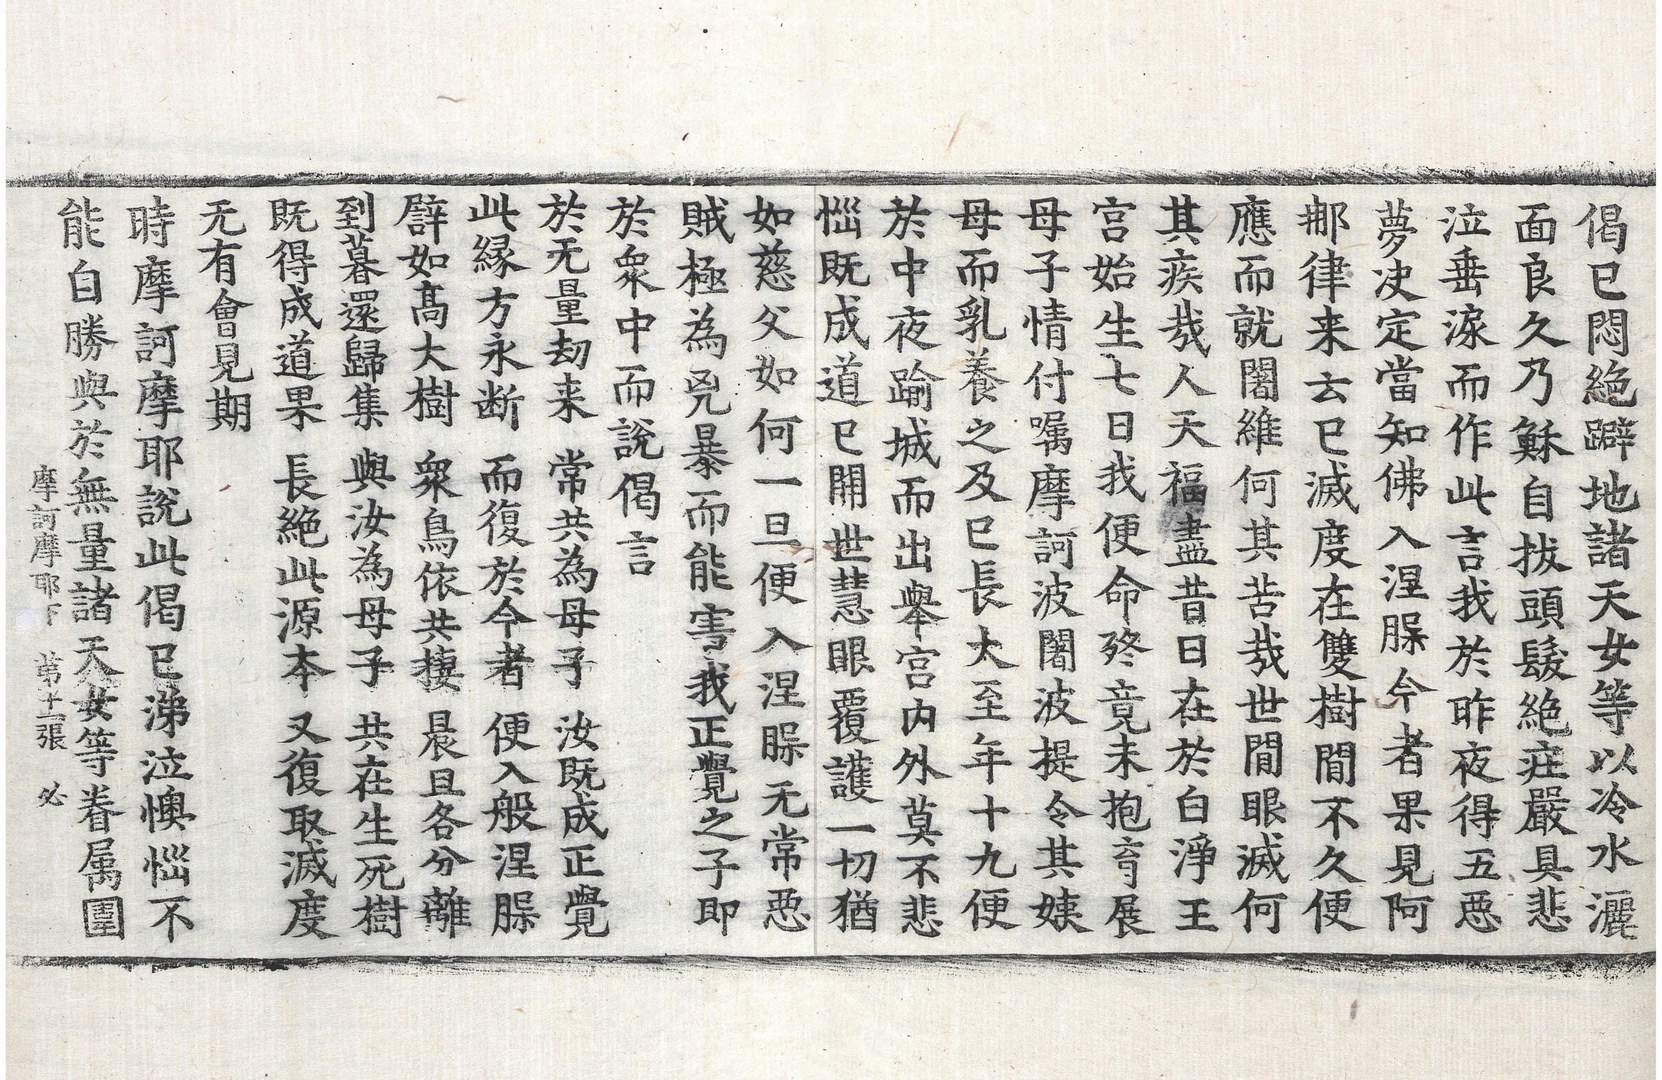 偈已悶絶躃地諸天女等以冷水灑
面良久乃穌自拔頭髮絶庄嚴具悲
泣垂淚而作此言我於昨夜得五惡
夢决定當知佛入涅槃今者果見阿
那律来云已滅度在雙樹間不久便
應而就闍維何其苦㢤世間眼滅何
其疾㢤人天福盡昔日在於白淨王
宮始生七日我便命終竟未抱育展
母子情付嘱摩訶波闍波提令其姨
母而乳養之及已長大至年十九便
於中夜踰城而出舉宮內外莫不悲
惱既成道已開世慧眼覆護一切猶
如慈父如何一旦便入涅槃无常惡
賊極為兇暴而能害我正覺之子即
於衆中而說偈言
於无量劫来 常共為母子 汝既成正覺
此縁方永断 而復於今者 便入般涅槃
譬如髙大樹 衆鳥依共棲 晨旦各分離
到暮還歸集 與汝為母子 共在生死樹
既得成道果 長絶此源本 又復取滅度
无有會見期
時摩訶摩耶說此偈已涕泣懊惱不
能自勝與於無量諸天女等眷属圍
摩訶摩耶下 第十二張 必